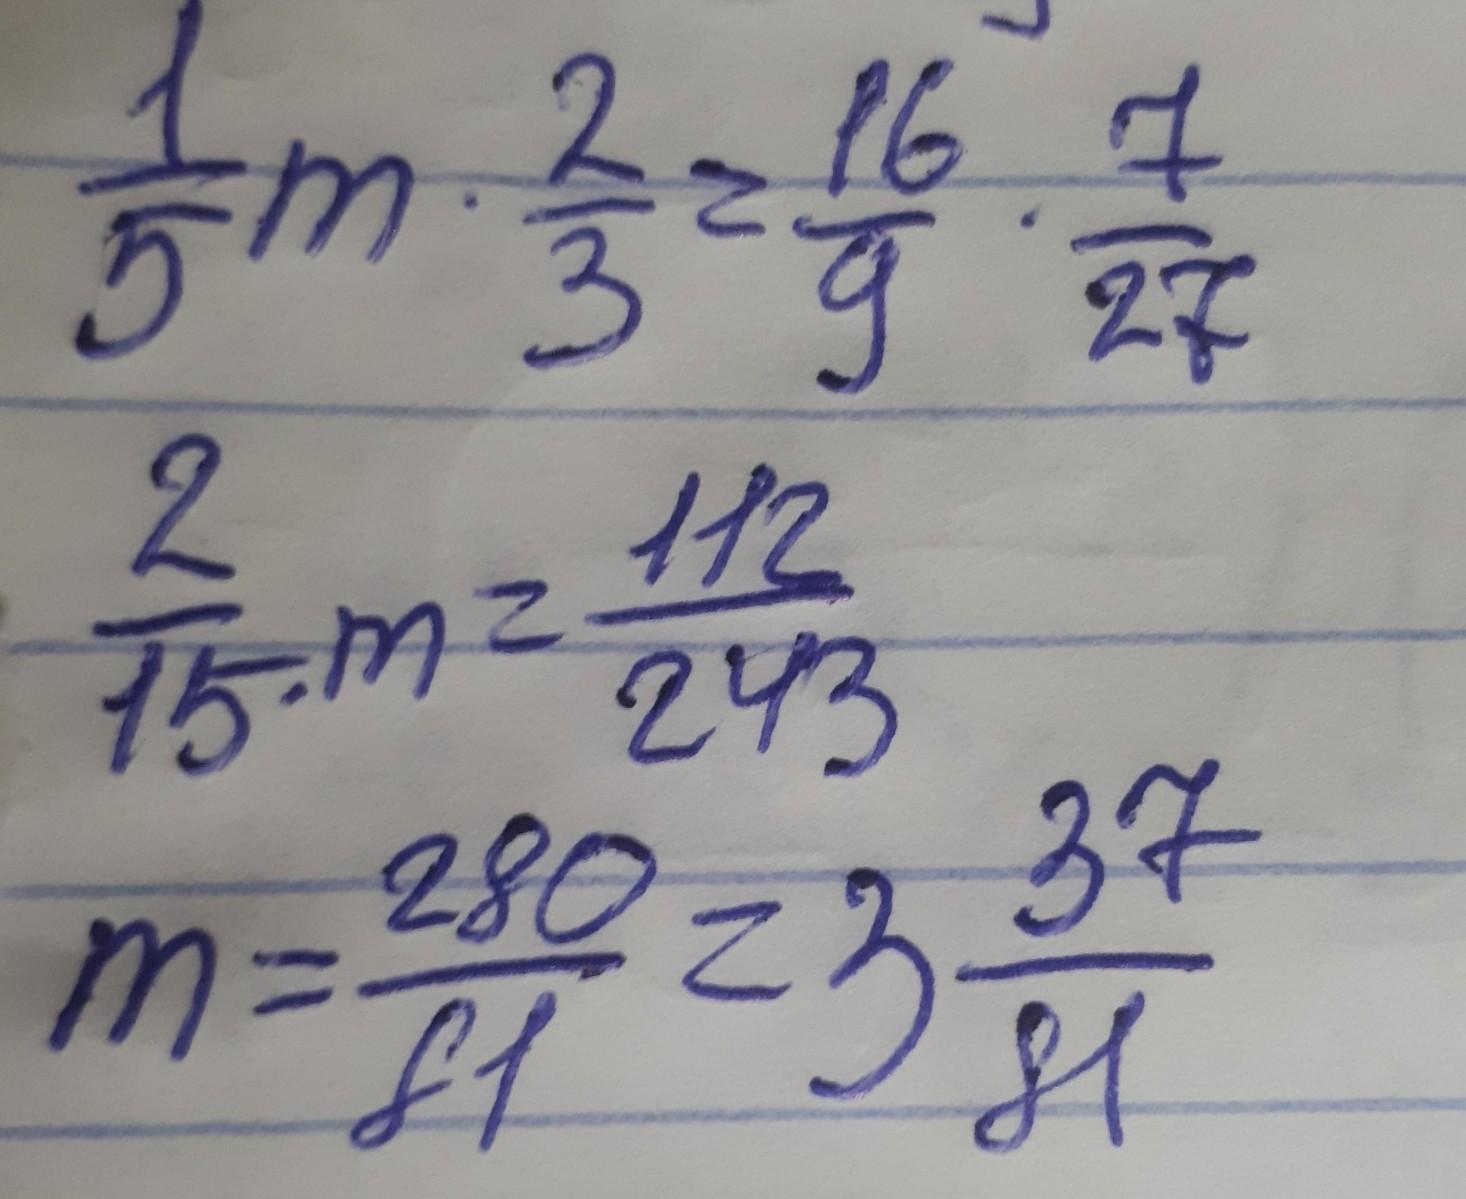 1/5 m · 2/3 = 16/9 · 7/27
2/15 · m = 112/243
m = 280/81 = 3 37/81